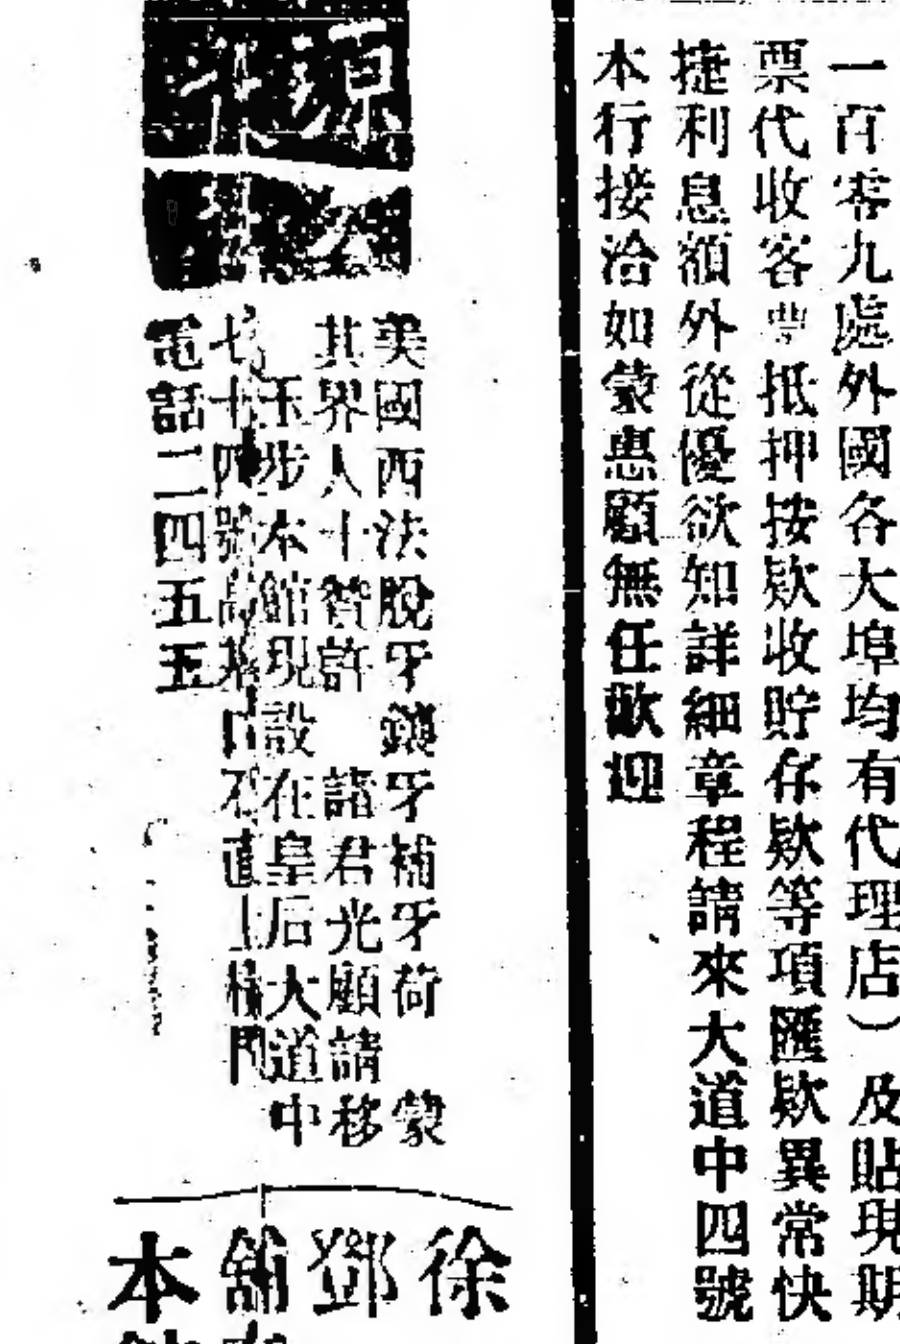 一百零九處外國各大埠均有代理店）及貼現期
票代收客票抵押按欵收貯存欵等項匯欵異常快
捷利息額外從優欲知詳細章程請來大道中四號
本行接洽如蒙惠顧無任歡迎
源
美國西法脫牙鑲牙補牙荷　蒙
其界人士贊許　諸君光顧請移
玉步本館現設在皇后大道中
七十四號　　　　直上樓門
電話二四五五
徐
鄧
舖
本